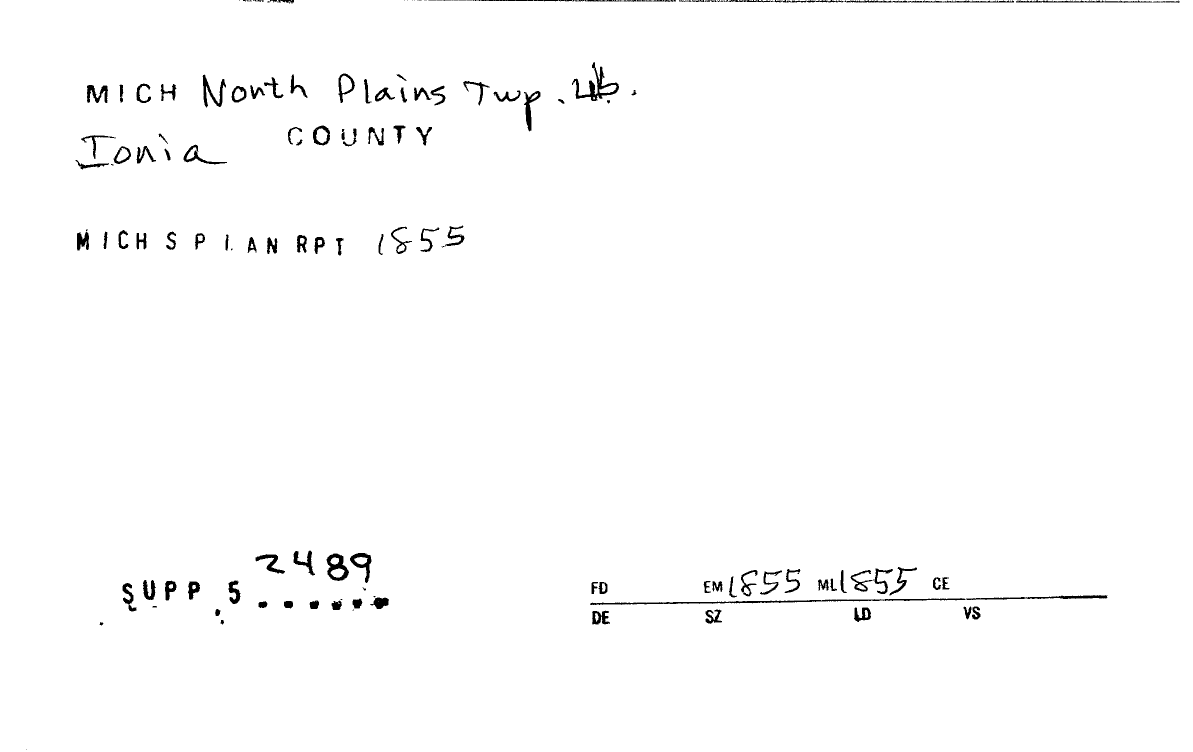 MICH North Plains Twp. Lib.
Ionia COUNTY
MICH S P I. AN RPT 1855
2489
SUPP 5 ......
FD EM 1855 ML 1855 CE
DE SZ LD VS